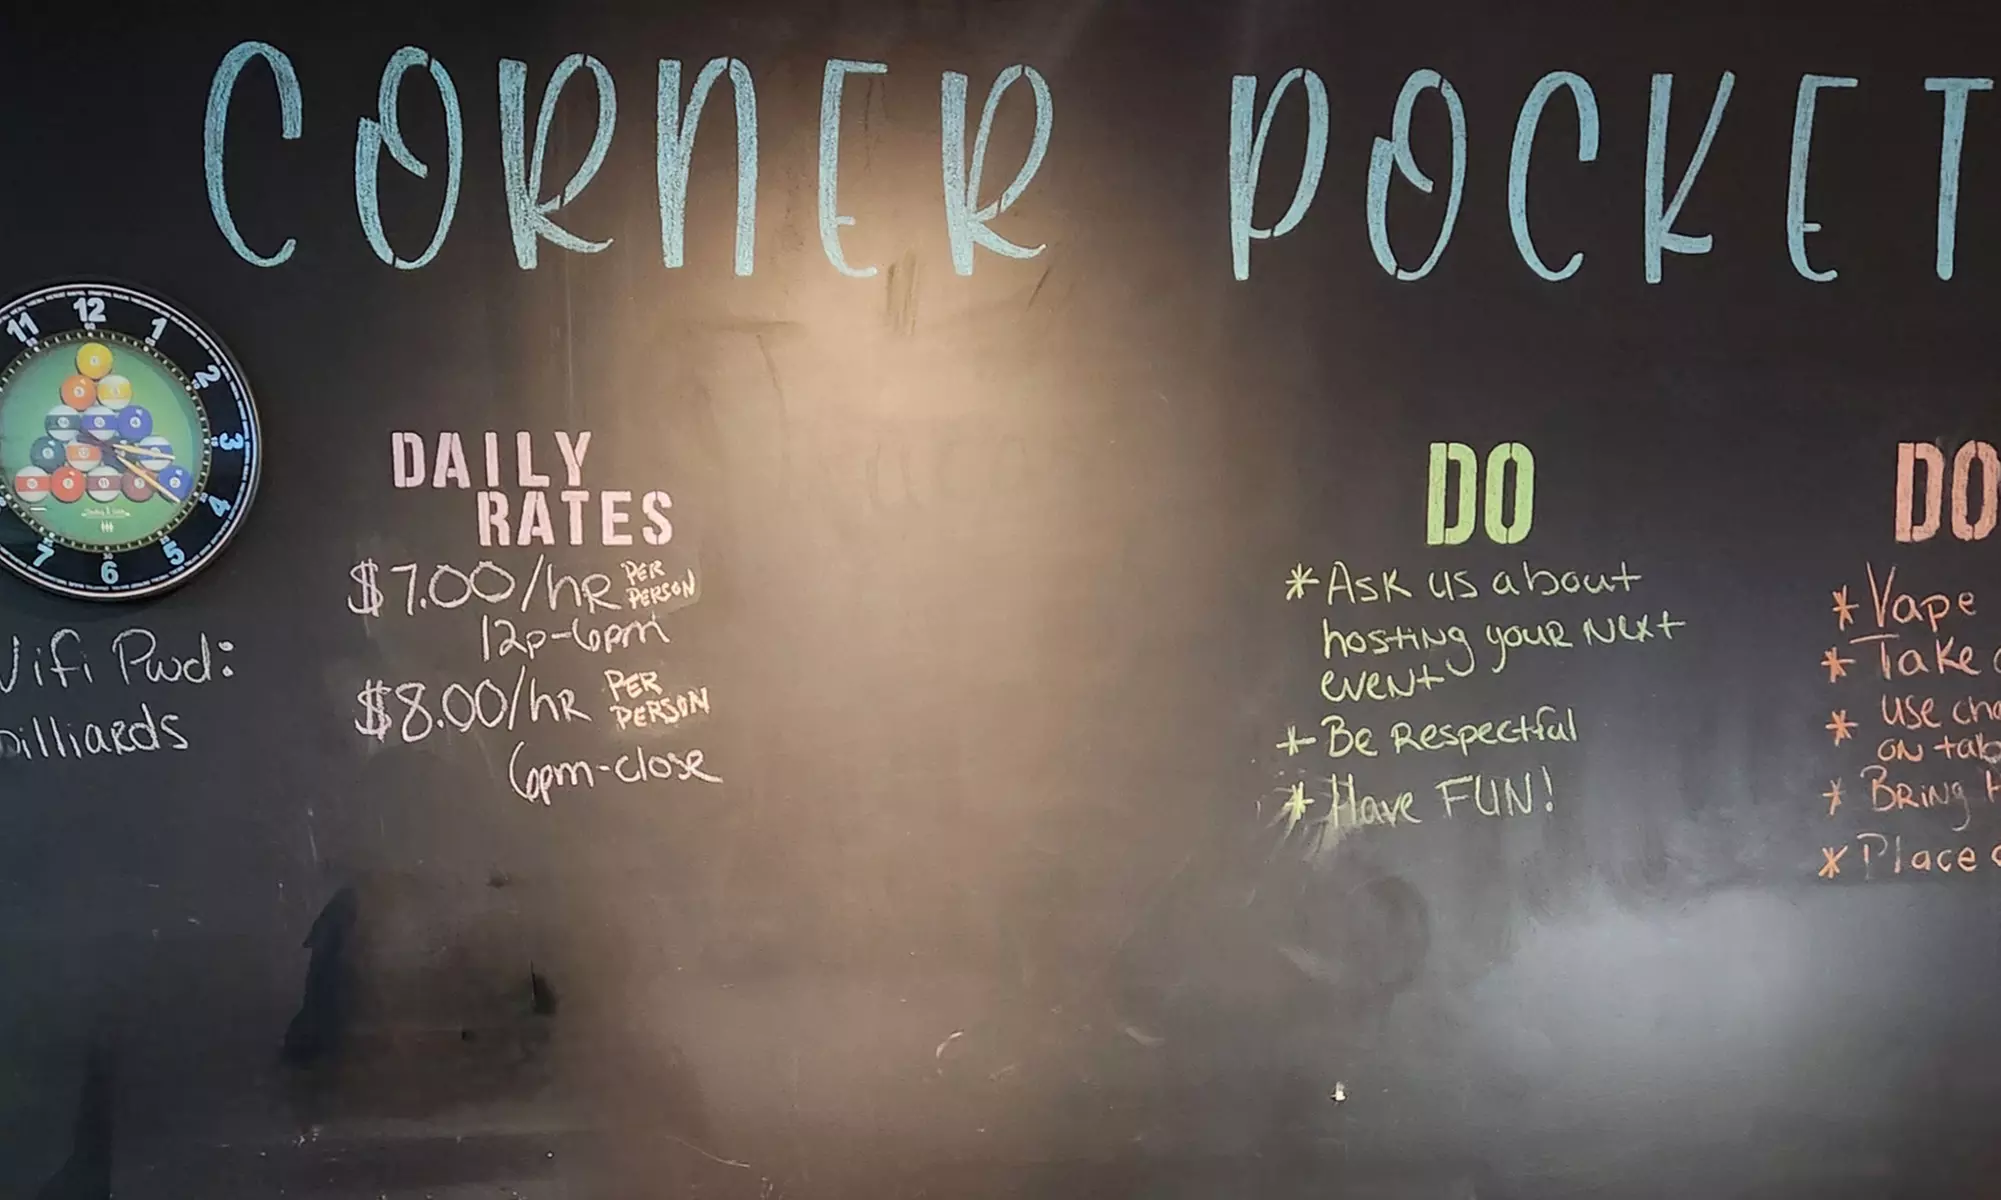 CORNER POCKET
12
1
2
3
4
5
6
7
11
Wifi Pwd:
billiards
DAILY
RATES
$7.00/hR PER PERSON
12p-6pm
$8.00/hR PER PERSON
6pm-close
DO
*Ask us about
hosting youR Next
eveNt
*Be Respectful
*Have FUN!
DO
*Vape
*Take
* use
oN
* BRiNg
*Place